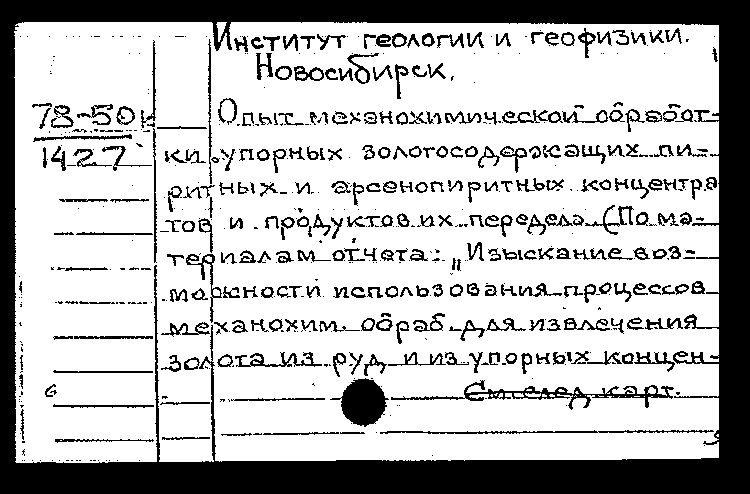 Институт геологии и геофизики.
Новосибирск.
78-50к
1427
Опыт механохимической обработ-
ки упорных золотосодержащих пи-
ритных и арсенопиритных концентра
тов и продуктов их передела. (По ма-
териалам отчета: „Изыскание воз-
можности использования процессов
механохим. обраб. для извлечения
золота из руд и из упорных концен-
См. след. карт.